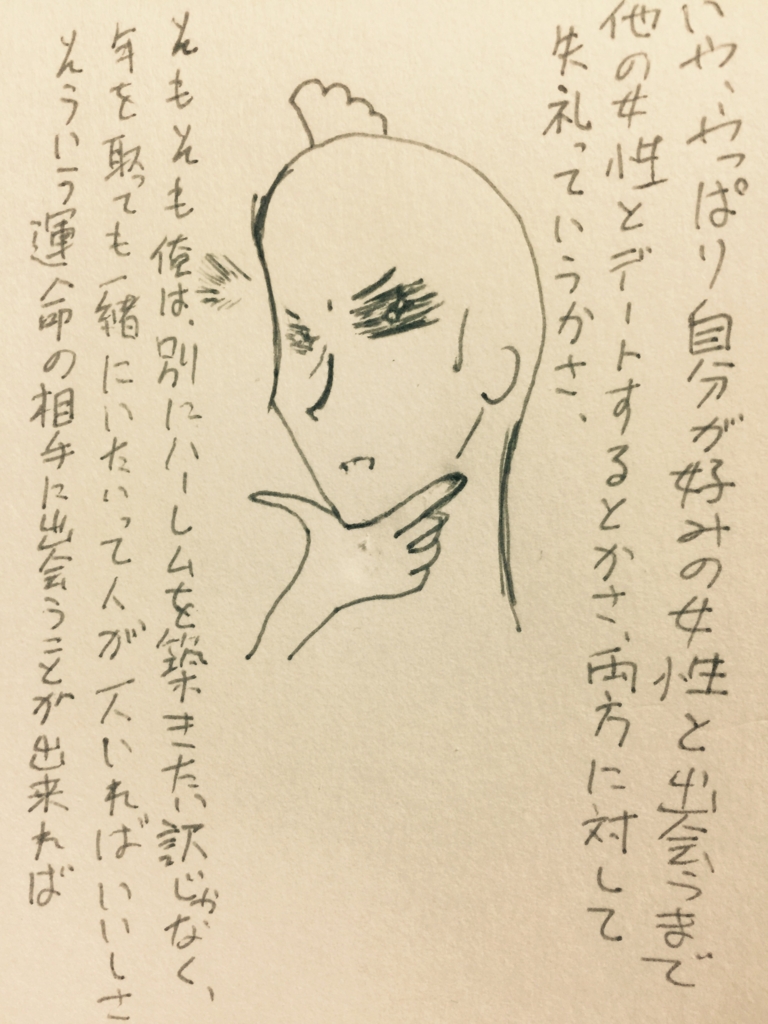 いや、やっぱり自分が好みの女性と出会うまで
他の女性とデートするとかさ、両方に対して
失礼っていうかさ、
そもそも俺は、別にハーレムを築きたい訳じゃなく、
年を取っても一緒にいたいって人が一人いればいいしさ
そういう運命の相手に出会うことが出来れば